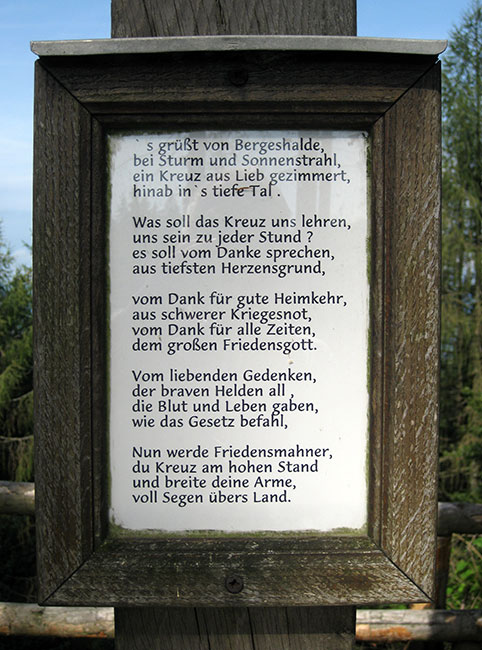 `s grüßt von Bergeshalde,
bei Sturm und Sonnenstrahl,
ein Kreuz aus Lieb gezimmert,
hinab in`s tiefe Tal .
Was soll das Kreuz uns lehren,
uns sein zu jeder Stund ?
es soll vom Danke sprechen,
aus tiefsten Herzensgrund,
vom Dank für gute Heimkehr,
aus schwerer Kriegesnot,
vom Dank für alle Zeiten,
dem großen Friedensgott.
Vom liebenden Gedenken,
der braven Helden all ,
die Blut und Leben gaben,
wie das Gesetz befahl,
Nun werde Friedensmahner,
du Kreuz am hohen Stand
und breite deine Arme,
voll Segen übers Land.